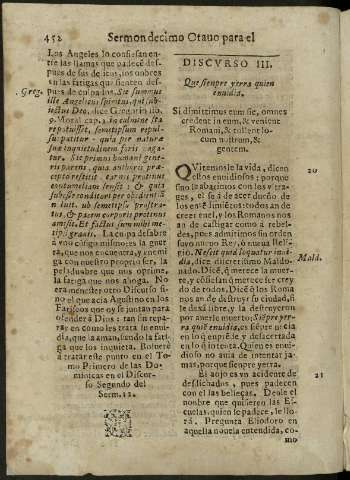 452 Sermon decimo Otauo para el
Los Angeles lo confiesan en-
tre las llamas que padecē des-
pues de sus delitos, los onbres
en las fatigas que sienten des-
pues de culpados. Sic summus
ille Angelicus spiritus, qui sub-
iectus Deo, dice Gregorio lib.
. Greg.
9. Moral cap. in culmine sta
re potuisset, semetipsum repul-
su patitur: quia per naturæ
suæ inquietudinem foris vaga-
tur. Sic primus humani gene-
ris parens, quia auctoris præ-
cepto restitit carnis protinus
contumeliam sensit: & quia
subesse conditori per obedientiā
noluit, sub semetipso prostra-
tus, & pacem corporis protinus
amisit. Et factus sum mihi me-
tipsi grauis. La enpa desabre
à vno cōsigo mismo: es la gue-
rra, que nos encuentra, y enemi
ga con nuestro proprio ser, la
pesadunbre que nos oprime,
la fatiga que nos ahoga. No
era menester otro Discurso si-
no el que acia Agustino en los
Fariseos que oy se juntan para
ofender à Dios: tan sin repa-
rar en como les trata su enui-
dia, que la aman, siendo la fati-
ga que los inquieta. Bolueré
à tratar este punto en el To-
mo Primero de las Do-
minicas en el Discur-
so Segundo del
Serm. 12.
DISCVRSO III.
Que sienpre yerra quien
enuidia.
Si dimittimus eum sic, omnes
credent in eum, & venient
Romani, & tollent lo-
cum nostrum, &
gentem.
QVitemosle la vida, dicen
20
estos enuidiosos: porque
sino le atajamos con los vltra-
ges, el se à de acer dueño de
los ensēñimiētos: todos an de
creer en el, y los Romanos nos
an de castigar como à rebel-
des, pues admitimos sin orden
suyo nueuo Rey, ò nueua Reli-
gió. Nescit quid loquatur inui-
dia, dice dicretisimo Maldo-
Mald.
nado. Dicē, q̄ merece la muer-
te, y cōfiesan q̄ merece ser crey
do de todos. Dicē q̄ los Roma
nos an de destruyr su ciudad, si
le dexā libre, y la destruyeron
por auerle muerto. Siēpre yer-
ra quiē enuidia, es siēpre necia
en lo q̄ enprēde, y desacertada
en lo q̄ intenta. Quien es enui-
dioso no auia de intentar ja-
mas, porque sienpre yerra.
El aojo es vn acidente de
21
desdichados, pues padecen
con el las belleças. Desle el
nonbre que quisieren las Es-
cuelas, quien le padece, le llo-
rà. Pregunta Eliodoro en
aquella nouela entendida, co-
mo